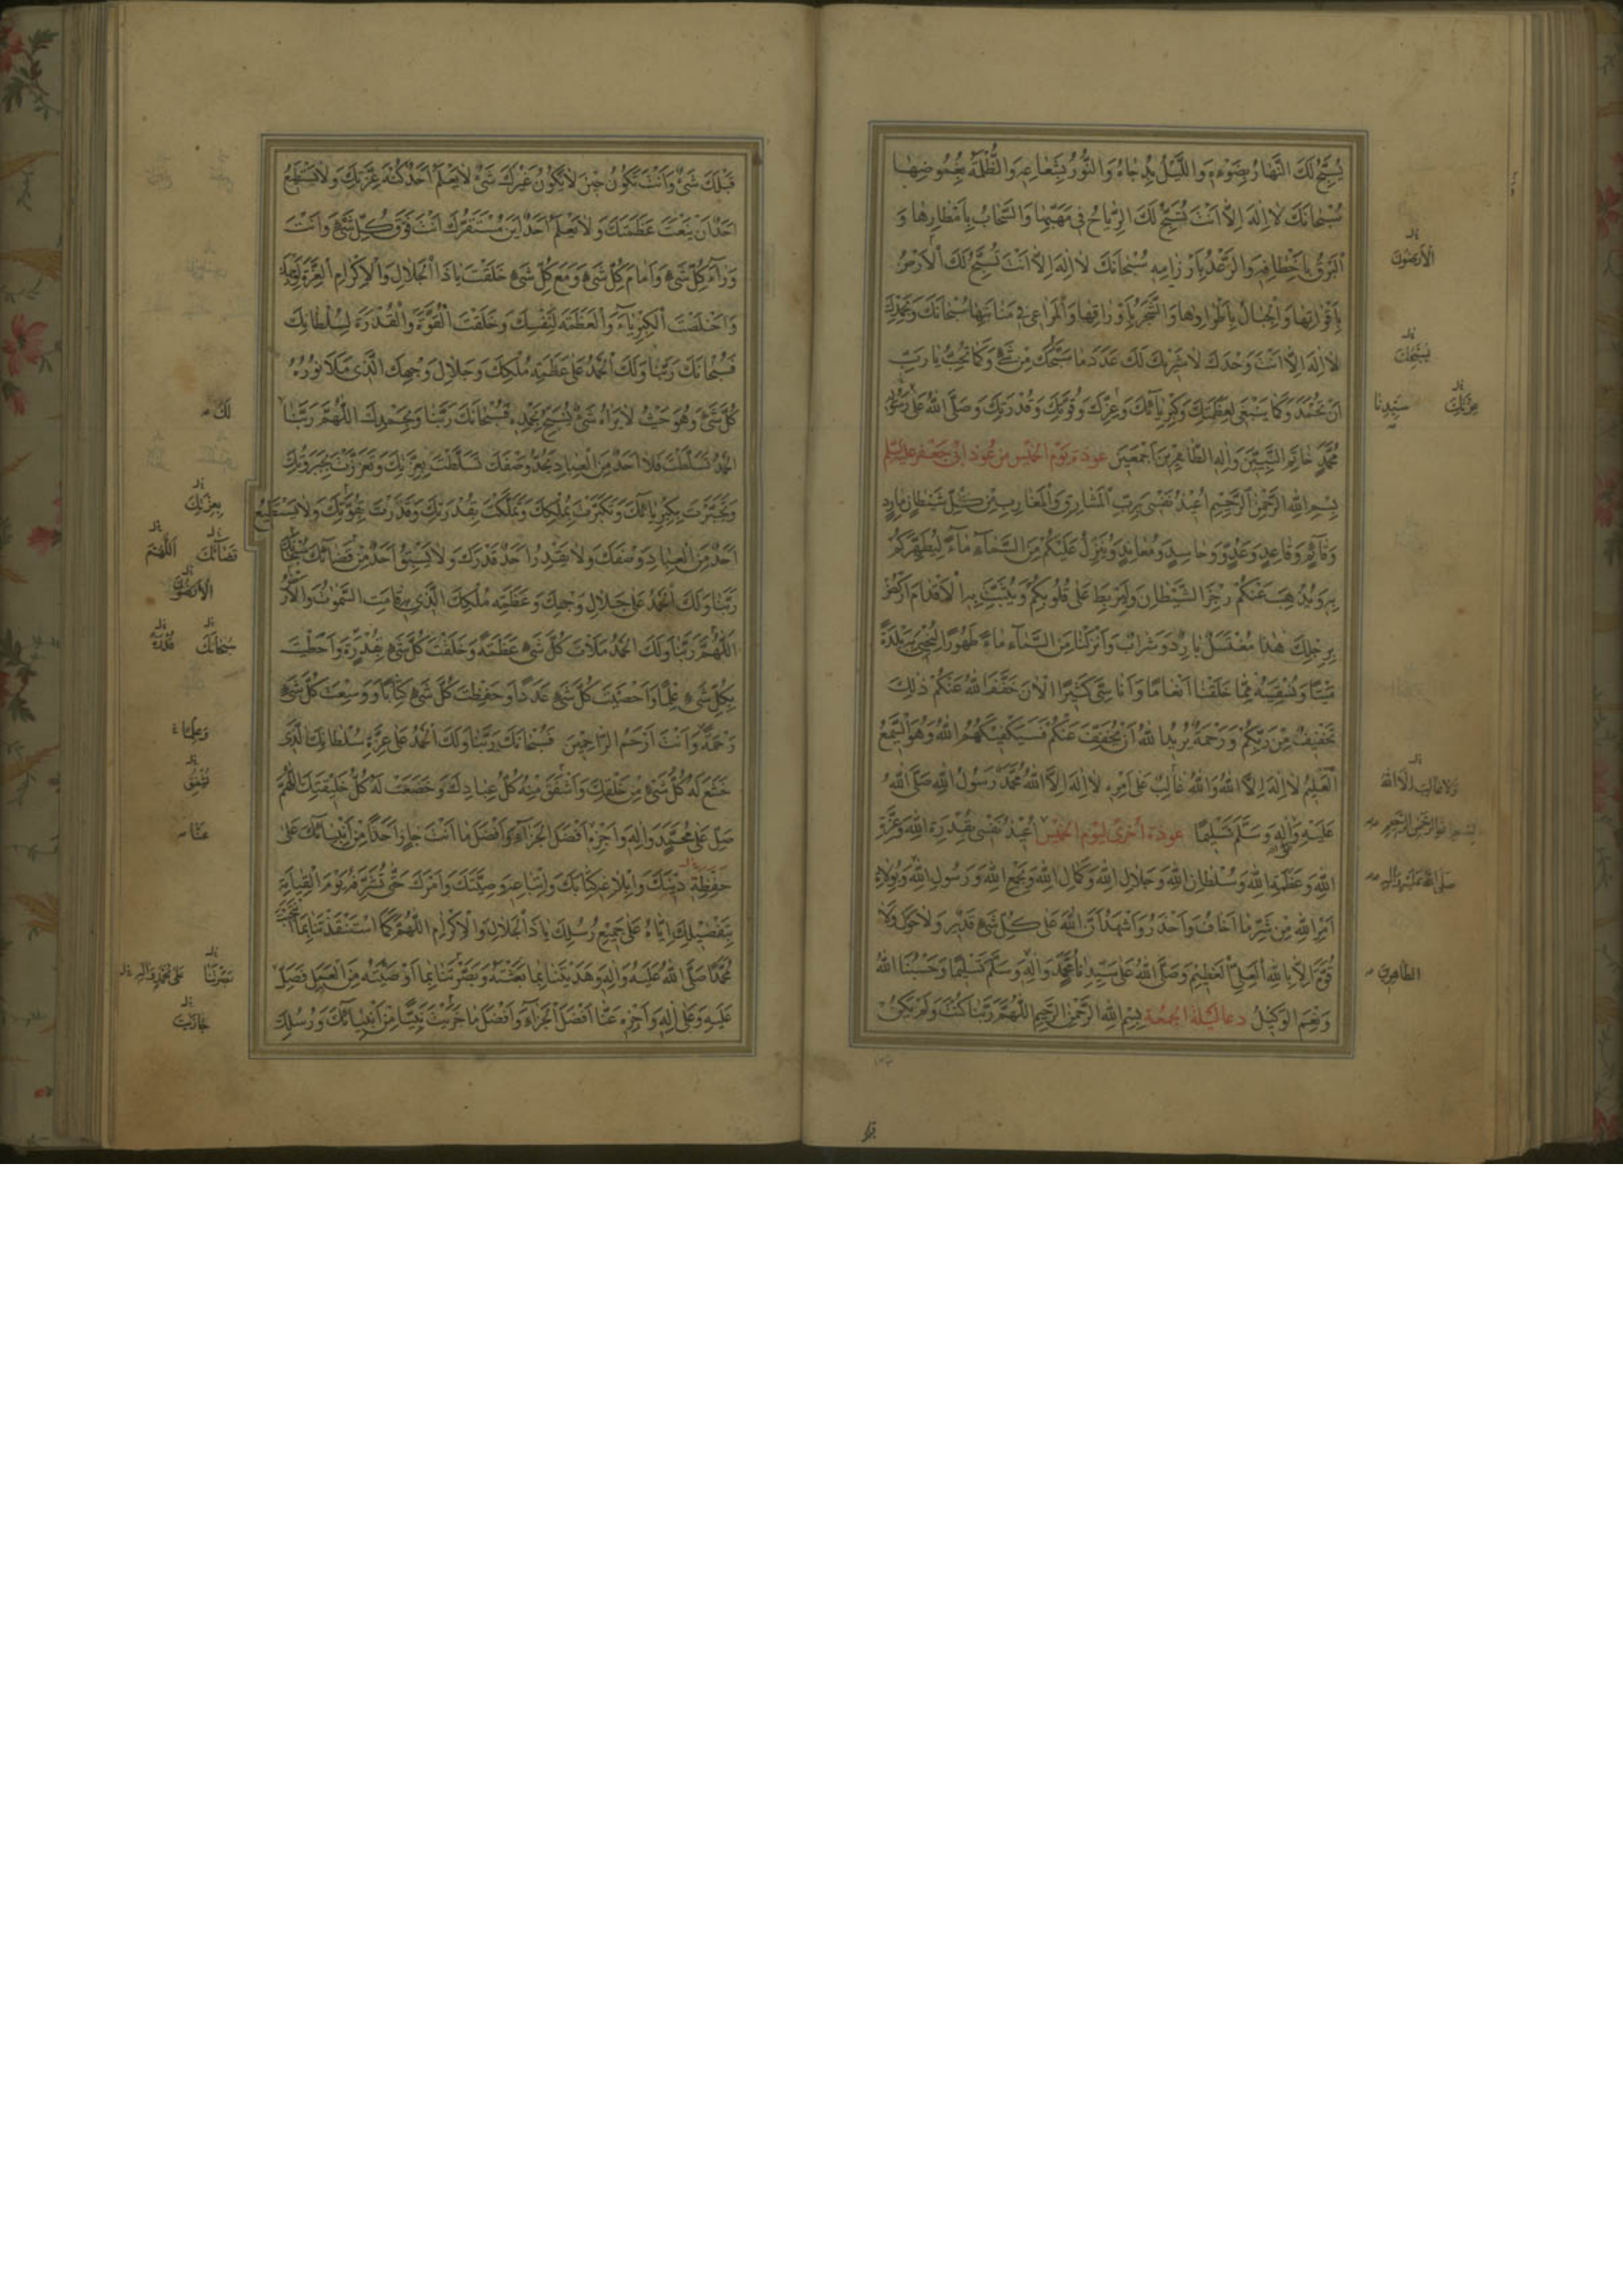 يُسَبِّحُ لَكَ النَّهَارُ بِضَوْءِهِ وَاللَّيْلُ بِدُجَاهُ وَالنُّورُ بِشُعَاعِهِ وَالظُّلْمَةُ بِغُمُوضِهَا
سُبْحَانَكَ لَا اِلٰهَ اِلَّا اَنْتَ تُسَبِّحُ لَكَ الرِّيَاحُ فِي مَهَبِّهَا وَالسَّحَابُ بِاَمْطَارِهَا وَ
الْبَرْقُ بِاَخْطَافِهِ وَالرَّعْدُ بِاَرْزَامِهِ سُبْحَانَكَ لَا اِلٰهَ اِلَّا اَنْتَ تُسَبِّحُ لَكَ الْاَرْضُ
بِاَقْوَاتِهَا وَالْجِبَالُ بِاَطْوَادِهَا وَالشَّجَرُ بِاَوْرَاقِهَا وَالْمَرَاعِي فِي مَنَابِتِهَا سُبْحَانَكَ وَبِحَمْدِكَ
لَا اِلٰهَ اِلَّا اَنْتَ وَحْدَكَ لَا شَرِيكَ لَكَ عَدَدَ مَا سَبَّحَكَ مِنْ شَيْءٍ وَكَمَا تُحِبُّ يَا رَبِّ
اَنْ تُحْمَدَ وَكَمَا يَنْبَغِي لِعَظَمَتِكَ وَكِبْرِيَائِكَ وَعِزِّكَ وَقُوَّتِكَ وَقُدْرَتِكَ وَصَلَّى اللهُ عَلَى رَسُولِهِ
مُحَمَّدٍ خَاتَمِ النَّبِيِّينَ وَاٰلِهِ الطَّاهِرِينَ اَجْمَعِينَ عوذة يوم الخميس من عوذ ابي جعفر عليه السلم
بِسْمِ اللهِ الرَّحْمٰنِ الرَّحِيمِ اُعِيذُ نَفْسِي بِرَبِّ الْمَشَارِقِ وَالْمَغَارِبِ مِنْ كُلِّ شَيْطَانٍ مَارِدٍ
وَقَائِمٍ وَقَاعِدٍ وَعَدُوٍّ وَحَاسِدٍ وَمُعَانِدٍ وَيُنَزِّلُ عَلَيْكُمْ مِنَ السَّمَاءِ مَاءً لِيُطَهِّرَكُمْ
بِهِ وَيُذْهِبَ عَنْكُمْ رِجْزَ الشَّيْطَانِ وَلِيَرْبِطَ عَلَى قُلُوبِكُمْ وَيُثَبِّتَ بِهِ الْاَقْدَامَ اُرْكُضْ
بِرِجْلِكَ هٰذَا مُغْتَسَلٌ بَارِدٌ وَشَرَابٌ وَاَنْزَلْنَا مِنَ السَّمَاءِ مَاءً طَهُورًا لِنُحْيِيَ بِهِ بَلْدَةً
مَيْتًا وَنُسْقِيَهُ مِمَّا خَلَقْنَا اَنْعَامًا وَاَنَاسِيَّ كَثِيرًا الْاٰنَ خَفَّفَ اللهُ عَنْكُمْ ذٰلِكَ
تَخْفِيفٌ مِنْ رَبِّكُمْ وَرَحْمَةٌ يُرِيدُ اللهُ اَنْ يُخَفِّفَ عَنْكُمْ فَسَيَكْفِيكَهُمُ اللهُ وَهُوَ السَّمِيعُ
الْعَلِيمُ لَا اِلٰهَ اِلَّا اللهُ وَاللهُ غَالِبٌ عَلَى اَمْرِهِ لَا اِلٰهَ اِلَّا اللهُ مُحَمَّدٌ رَسُولُ اللهِ صَلَّى اللهُ
عَلَيْهِ وَاٰلِهِ وَسَلَّمَ تَسْلِيمًا عوذة اخرى ليوم الخميس اُعِيذُ نَفْسِي بِقُدْرَةِ اللهِ وَعِزَّةِ
اللهِ وَعَظَمَةِ اللهِ وَسُلْطَانِ اللهِ وَجَلَالِ اللهِ وَكَمَالِ اللهِ وَبِجَمْعِ اللهِ وَرَسُولِ اللهِ وَبِوُلَاةِ
اَمْرِ اللهِ مِنْ شَرِّ مَا اَخَافُ وَاَحْذَرُ وَاَشْهَدُ اَنَّ اللهَ عَلَى كُلِّ شَيْءٍ قَدِيرٌ وَلَا حَوْلَ وَلَا
قُوَّةَ اِلَّا بِاللهِ الْعَلِيِّ الْعَظِيمِ وَصَلَّى اللهُ عَلَى سَيِّدِنَا مُحَمَّدٍ وَاٰلِهِ وَسَلَّمَ تَسْلِيمًا وَحَسْبُنَا اللهُ
وَنِعْمَ الْوَكِيلُ دعا ليلة الجمعة بِسْمِ اللهِ الرَّحْمٰنِ الرَّحِيمِ اَللّٰهُمَّ رَبَّنَا كُنْتَ وَلَمْ يَكُنْ
الْاَرَضُونَ
يُسَبِّحُكَ
عِزَّتِكَ
سَيِّدِنَا
وَلَا غَالِبَ اِلَّا اللهُ
بسم الله الرحمن الرحيم
صَلَّى اللهُ عَلَيْهِ وَاٰلِهِ
الطَّاهِرِينَ
قَبْلَكَ شَيْءٌ وَاَنْتَ تَكُونُ حِينَ لَا يَكُونُ غَيْرَكَ شَيْءٌ لَا يَعْلَمُ اَحَدٌ كُنْهَ عِزَّتِكَ وَلَا يَسْتَطِيعُ
اَحَدٌ اَنْ يَنْعَتَ عَظَمَتَكَ وَلَا يَعْلَمُ اَحَدٌ اَيْنَ مُسْتَقَرُّكَ اَنْتَ فَوْقَ كُلِّ شَيْءٍ وَاَنْتَ
وَرَاءَ كُلِّ شَيْءٍ وَاَمَامَ كُلِّ شَيْءٍ وَمَعَ كُلِّ شَيْءٍ خَلَقْتَ يَا ذَا الْجَلَالِ وَالْاِكْرَامِ الْعِزَّةَ لِوَجْهِكَ
وَاَخْلَصْتَ الْكِبْرِيَاءَ وَالْعَظَمَةَ لِنَفْسِكَ وَخَلَقْتَ الْقُوَّةَ وَالْقُدْرَةَ لِسُلْطَانِكَ
فَسُبْحَانَكَ رَبَّنَا وَلَكَ الْحَمْدُ عَلَى عَظَمَةِ مُلْكِكَ وَجَلَالِ وَجْهِكَ الَّذِي مَلَأَ نُورُهُ
كُلَّ شَيْءٍ وَهُوَ حَيْثُ لَا يَرَاهُ شَيْءٌ يُسَبِّحُ بِحَمْدِهِ فَسُبْحَانَكَ رَبَّنَا وَبِحَمْدِكَ اَللّٰهُمَّ رَبَّنَا
الْحَمْدُ تَسَلَّطْتَ فَلَا اَحَدٌ مِنَ الْعِبَادِ يَحُدُّ وَصْفَكَ تَسَلَّطْتَ بِعِزَّتِكَ وَتَعَزَّزْتَ بِجَبَرُوتِكَ
وَتَجَبَّرْتَ بِكِبْرِيَائِكَ وَتَكَبَّرْتَ بِمُلْكِكَ وَتَمَلَّكْتَ بِقُدْرَتِكَ وَقَدَرْتَ بِقُوَّتِكَ وَلَا يَسْتَطِيعُ
اَحَدٌ مِنَ الْعِبَادِ وَصْفَكَ وَلَا يَقْدِرُ اَحَدٌ قَدْرَكَ وَلَا يَسْبِقُ اَحَدٌ مِنْ قَضَائِكَ سُبْحَانَكَ
رَبَّنَا وَلَكَ الْحَمْدُ عَلَى جَلَالِ وَجْهِكَ وَعَظَمَةِ مُلْكِكَ الَّذِي بِهِ قَامَتِ السَّمٰوٰتُ وَالْاَرْضُ
اَللّٰهُمَّ رَبَّنَا وَلَكَ الْحَمْدُ مَلَأْتَ كُلَّ شَيْءٍ عَظَمَةً وَخَلَقْتَ كُلَّ شَيْءٍ بِقُدْرَةٍ وَاَحَطْتَ
بِكُلِّ شَيْءٍ عِلْمًا وَاَحْصَيْتَ كُلَّ شَيْءٍ عَدَدًا وَحَفِظْتَ كُلَّ شَيْءٍ كِتَابًا وَوَسِعْتَ كُلَّ شَيْءٍ
رَحْمَةً وَاَنْتَ اَرْحَمُ الرَّاحِمِينَ فَسُبْحَانَكَ رَبَّنَا وَلَكَ الْحَمْدُ عَلَى عِزَّةِ سُلْطَانِكَ الَّذِي
خَشَعَ لَهُ كُلُّ شَيْءٍ مِنْ خَلْقِكَ وَاَشْفَقَ مِنْهُ كُلُّ عِبَادِكَ وَخَضَعَتْ لَهُ كُلُّ خَلِيقَتِكَ اَللّٰهُمَّ
صَلِّ عَلَى مُحَمَّدٍ وَاٰلِهِ وَاجْزِهِ اَفْضَلَ الْجَزَاءِ وَاَفْضَلَ مَا اَنْتَ جَازٍ اَحَدًا مِنْ اَنْبِيَائِكَ عَلَى
حِفْظِهِ دِينَكَ وَاِبْلَاغِهِ كِتَابَكَ وَاتِّبَاعِهِ وَصِيَّتَكَ وَاَمْرَكَ حَتَّى تُشَرِّفَهُ يَوْمَ الْقِيَامَةِ
بِتَفْضِيلِكَ اِيَّاهُ عَلَى جَمِيعِ رُسُلِكَ يَا ذَا الْجَلَالِ وَالْاِكْرَامِ اَللّٰهُمَّ كَمَا اسْتَنْقَذْتَنَا بِمَا انْتَجَبْتَ
مُحَمَّدًا صَلَّى اللهُ عَلَيْهِ وَاٰلِهِ وَهَدَيْتَنَا بِمَا بَعَثْتَهُ وَبَصَّرْتَنَا بِمَا اَوْصَيْتَهُ مِنَ الْعَمَلِ فَصَلِّ
عَلَيْهِ وَعَلَى اٰلِهِ وَاجْزِهِ عَنَّا اَفْضَلَ الْجَزَاءِ وَاَفْضَلَ مَا جَزَيْتَ نَبِيًّا مِنْ اَنْبِيَائِكَ وَرُسُلِكَ
لَكَ
بِعِزَّتِكَ
قَضَائِكَ
اَللّٰهُمَّ
الْاَرَضُونَ
سُبْحَانَكَ
عَنَّا
نَصَرْتَنَا
عَلَى مُحَمَّدٍ وَاٰلِهِ
جَازَيْتَ